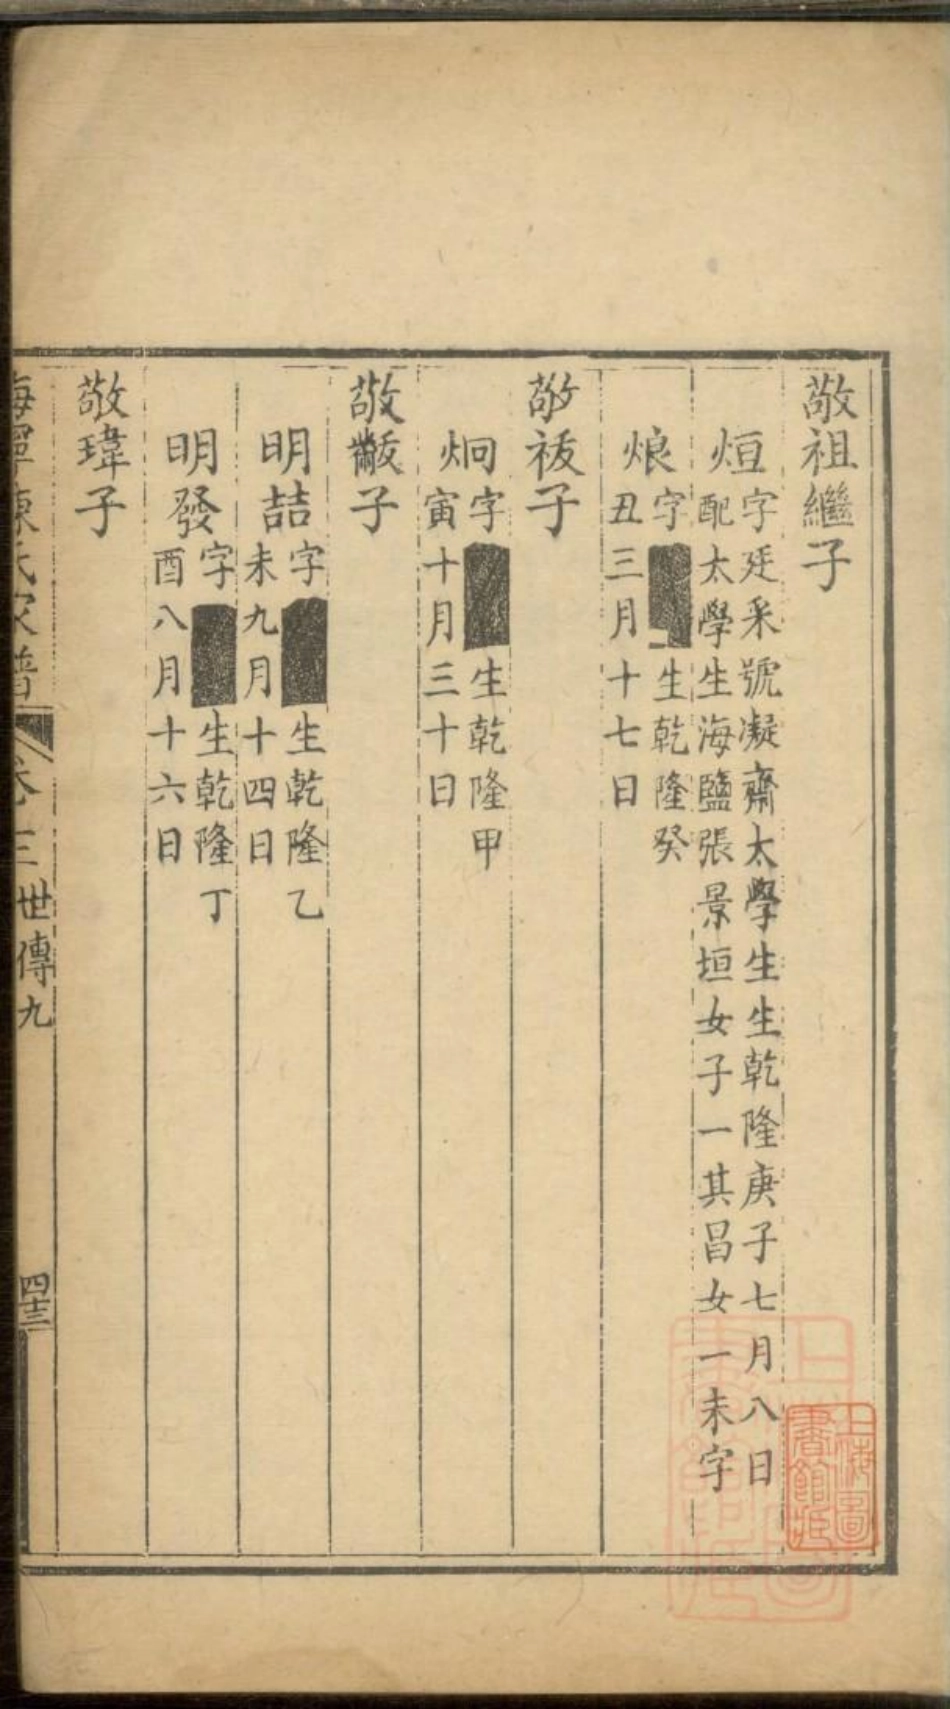 敬祖繼子
烜字廷采號凝齋太學生生乾隆庚子七月八日
配太學生海鹽張景垣女子一其昌女一未字
烺字■生乾隆癸
丑三月十七日
敬祓子
炯字■生乾隆甲
寅十月三十日
敬黻子
明喆字■生乾隆乙
未九月十四日
明發字■生乾隆丁
酉八月十六日
敬瑋子
海寧陳氏家譜 卷十三世傳九 四十三
上海圖書館藏